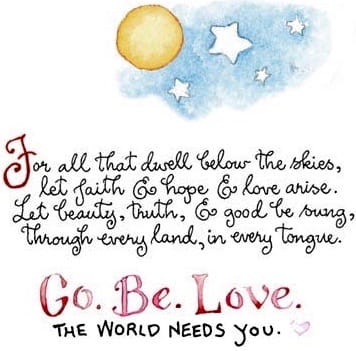 For all that dwell below the skies,
let faith & hope & love arise.
Let beauty, truth, & good be sung,
through every land, in every tongue.
Go. Be. Love.
THE WORLD NEEDS YOU.